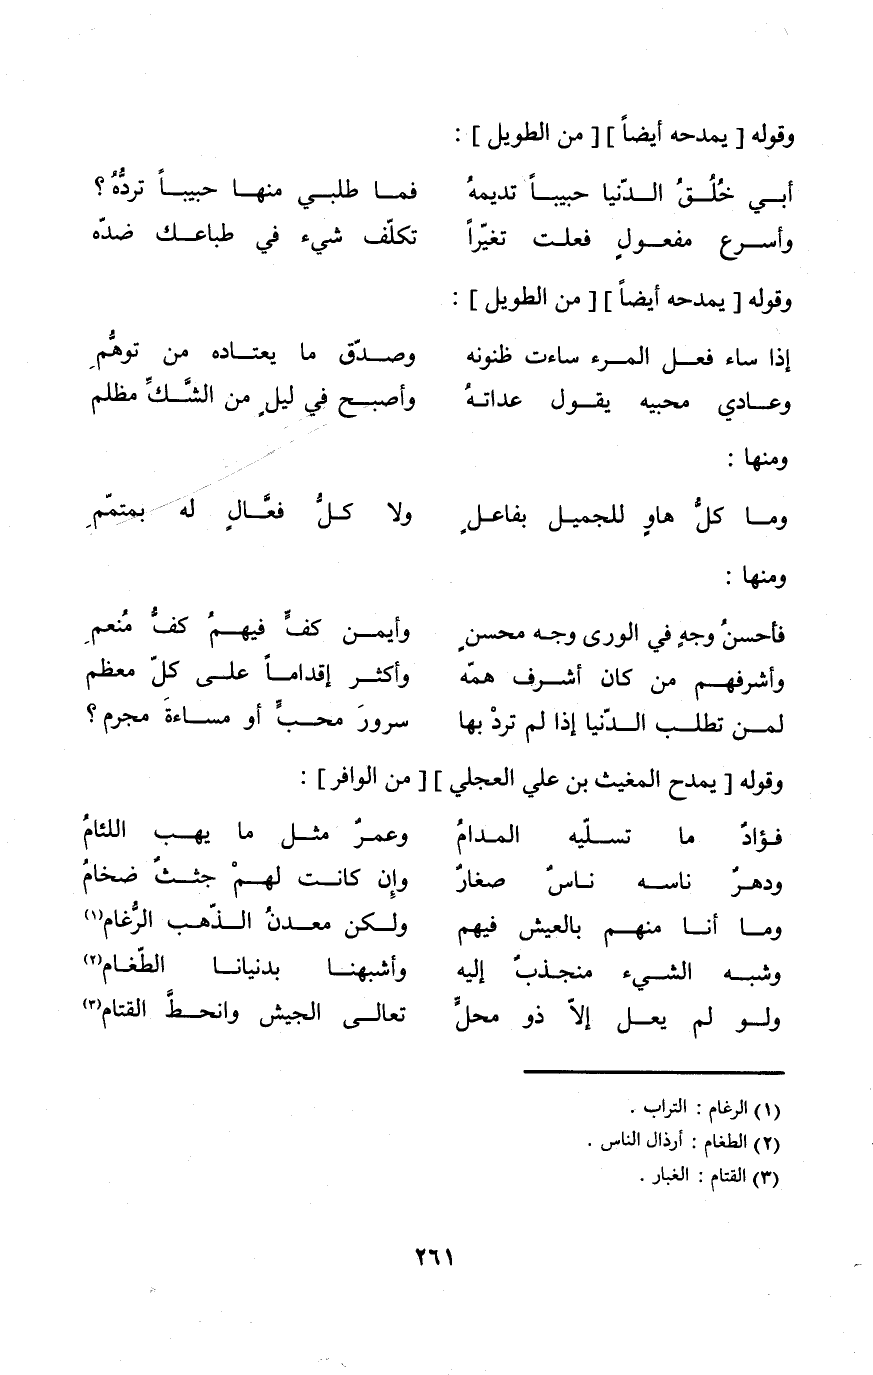 وقوله [ يمدحه أيضاً ] [ من الطويل ] :
أبـي خُلُـقُ الـدّنيا حبيبـاً تديمهُ فمـا طلبـي منهـا حبيبـاً تردُّهُ ؟
وأسـرع مفعـولٍ فعلـت تغيّراً تكلّف شيء في طباعـك ضدّه
وقوله [ يمدحه أيضاً ] [ من الطويل ] :
إذا ساء فعـل المـرء ساءت ظنونه وصـدّق ما يعتـاده من توهُّمِ
وعـادي محبيه يقـول عداتـهُ وأصبـح في ليلٍ من الشَّـكِّ مظلم
ومنها :
ومـا كلُّ هاوٍ للجميـل بفاعـلٍ ولا كـلُّ فعَّـالٍ له بمتمّمِ
ومنها :
فأحسنُ وجهٍ في الورى وجـه محسنٍ وأيمـن كفٍّ فيهـمُ كفُّ مُنعمِ
وأشرفهـم من كان أشـرف همّه وأكثـر إقدامـاً علـى كلّ معظم
لمـن تطلـب الـدّنيا إذا لم تردْ بها سرورَ محـبٍّ أو مسـاءةَ مجرم ؟
وقوله [ يمدح المغيث بن علي العجلي ] [ من الوافر ] :
فـؤادٌ ما تسـلّيه المـدامُ وعمـرٌ مثـل ما يهـب اللئامُ
ودهـرٌ ناسـه نـاسٌ صغارٌ وإن كانـت لهـمْ جثـثٌ ضخامُ
ومـا أنـا منهـم بالعيش فيهم ولـكن معـدنُ الـذّهـب الرُّغام(١)
وشبـه الشـيء منجـذبٌ إليه وأشبهنـا بدنيانـا الطّغـام(٢)
ولـو لم يعـل إلاّ ذو محلٍّ تعالـى الجيش وانحـطَّ القتام(٣)
(١) الرغام : التراب .
(٢) الطغام : أرذال الناس .
(٣) القتام : الغبار .
٢٦١